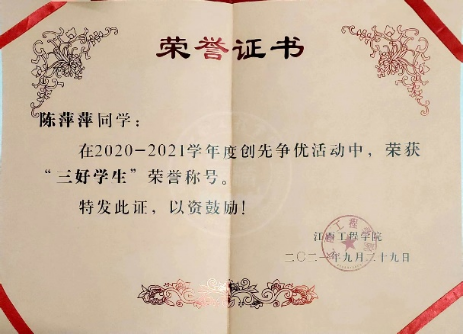 荣誉证书
陈萍萍同学：
在2020-2021学年度创先争优活动中，荣获
“三好学生”荣誉称号。
特发此证，以资鼓励！
江西工程学院
二〇二一年九月二十九日